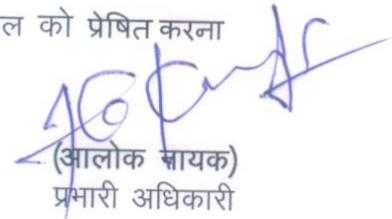 ल को प्रेषित करना
(आलोक नायक)
प्रभारी अधिकारी